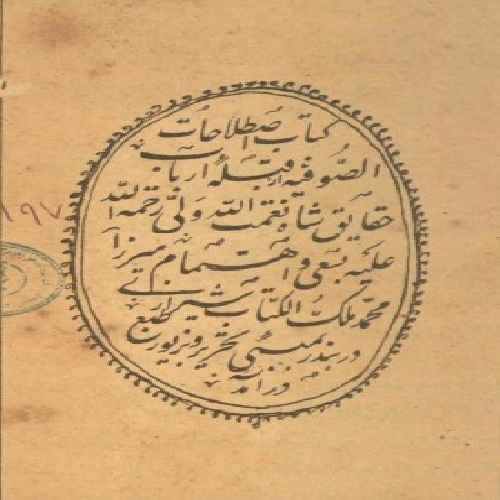 کتاب اصطلاحات
الصوفیه از قبله ارباب
حقایق شاه نعمت الله ولی رحمة الله
علیه بسعی و اهتمام میرزا
محمد ملک الکتاب شیرازی
در بندر بمبئی بتحریر و زیور طبع
در آمد
۱۹۷